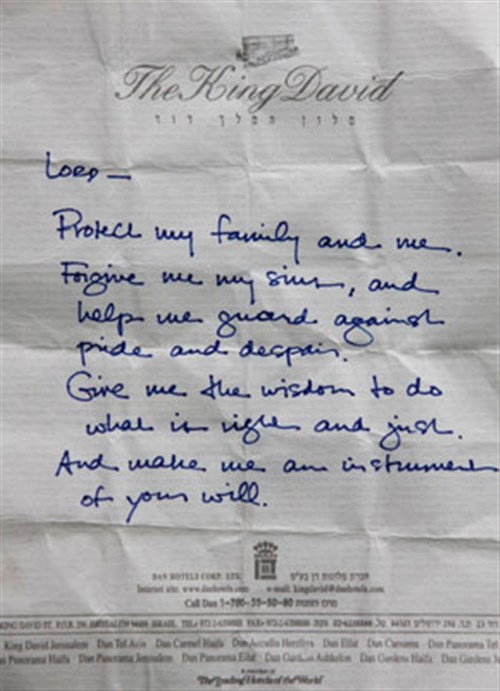 The King David
מלון המלך דוד
Lord —
Protect my family and me.
Forgive me my sins, and
help me guard against
pride and despair.
Give me the wisdom to do
what is right and just.
And make me an instrument
of your will.
DAN HOTELS CORP. LTD. חברת מלונות דן בע"מ
Internet site: www.danhotels.com e-mail: kingdavid@danhotels.com
Call Dan 1-700-50-50-80 מרכז הזמנות
King David Jerusalem Dan Tel Aviv Dan Carmel Haifa Dan Accadia Herzliya Dan Eilat Dan Caesarea Dan Panorama Tel
Panorama Haifa Dan Panorama Jerusalem Dan Panorama Eilat Dan Gardens Ashkelon Dan Gardens Haifa Dan Gardens
A member of
The Leading Hotels of the World